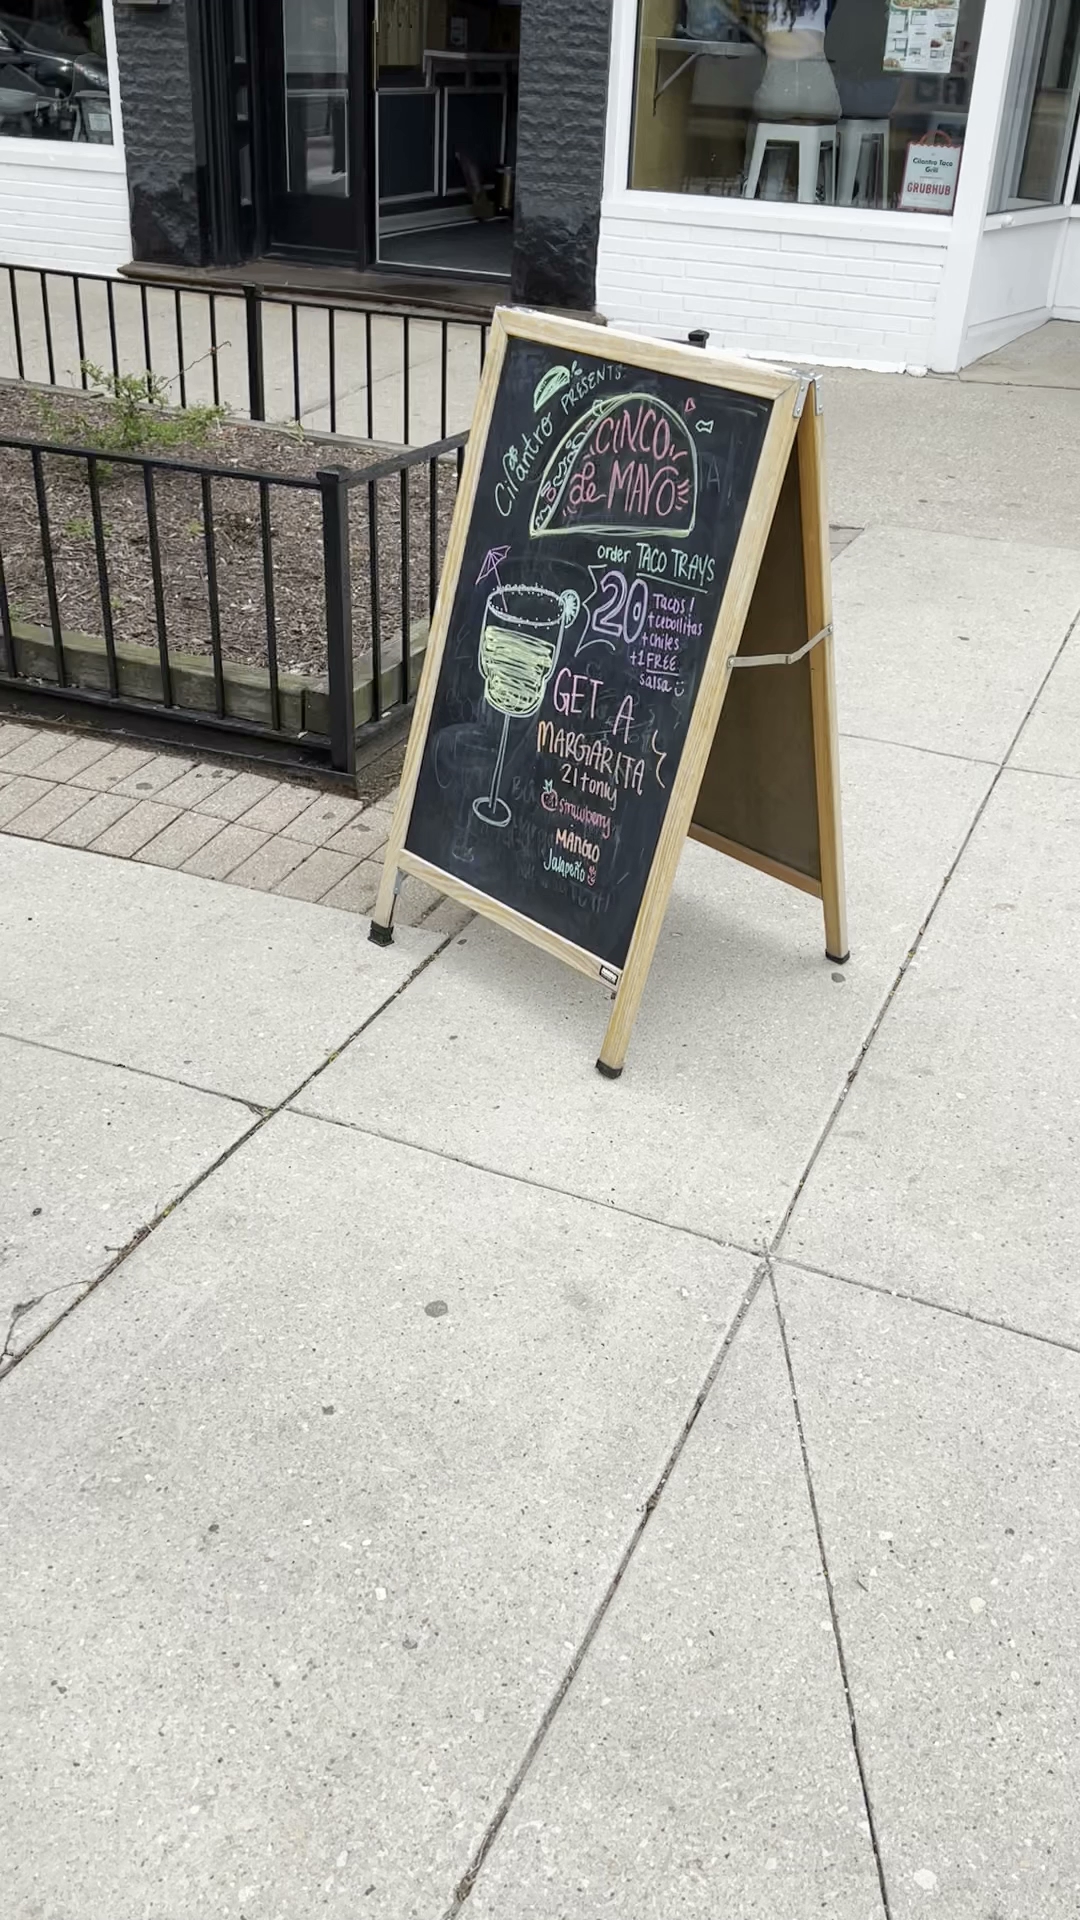 Cilantro PRESENTS:
CINCO
de MAYO
order TACO TRAYS
20 Tacos!
+cebollitas
+chiles
+1 FREE
salsa
GET A
MARGARITA
21+only
strawberry
MANGO
Jalapeño
Cilantro Taco
Grill
GRUBHUB